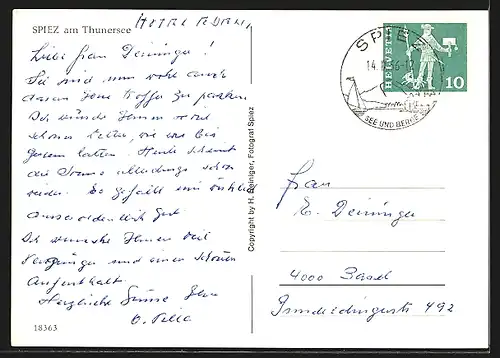 SPIEZ am Thunersee
HOTEL
Liebe Frau Deininger!
Sie sind nun wohl auch
daran Ihre Koffer zu packen
Ich wünsche Ihnen
schönes Wetter, wie wir bis
gestern hatten. Heute scheint
die Sonne allerdings schon
wieder. Es gefällt mir wirklich
ausserordentlich gut
Ich wünsche Ihnen viel
Vergnügen und einen schönen
Aufenthalt.
Herzliche Grüsse Ihre
18363
Copyright by H. Reiniger, Fotograf Spiez
SPIEZ
SEE UND BERGE
HELVETIA
10
Frau
E. Deininger
4000 Basel
492